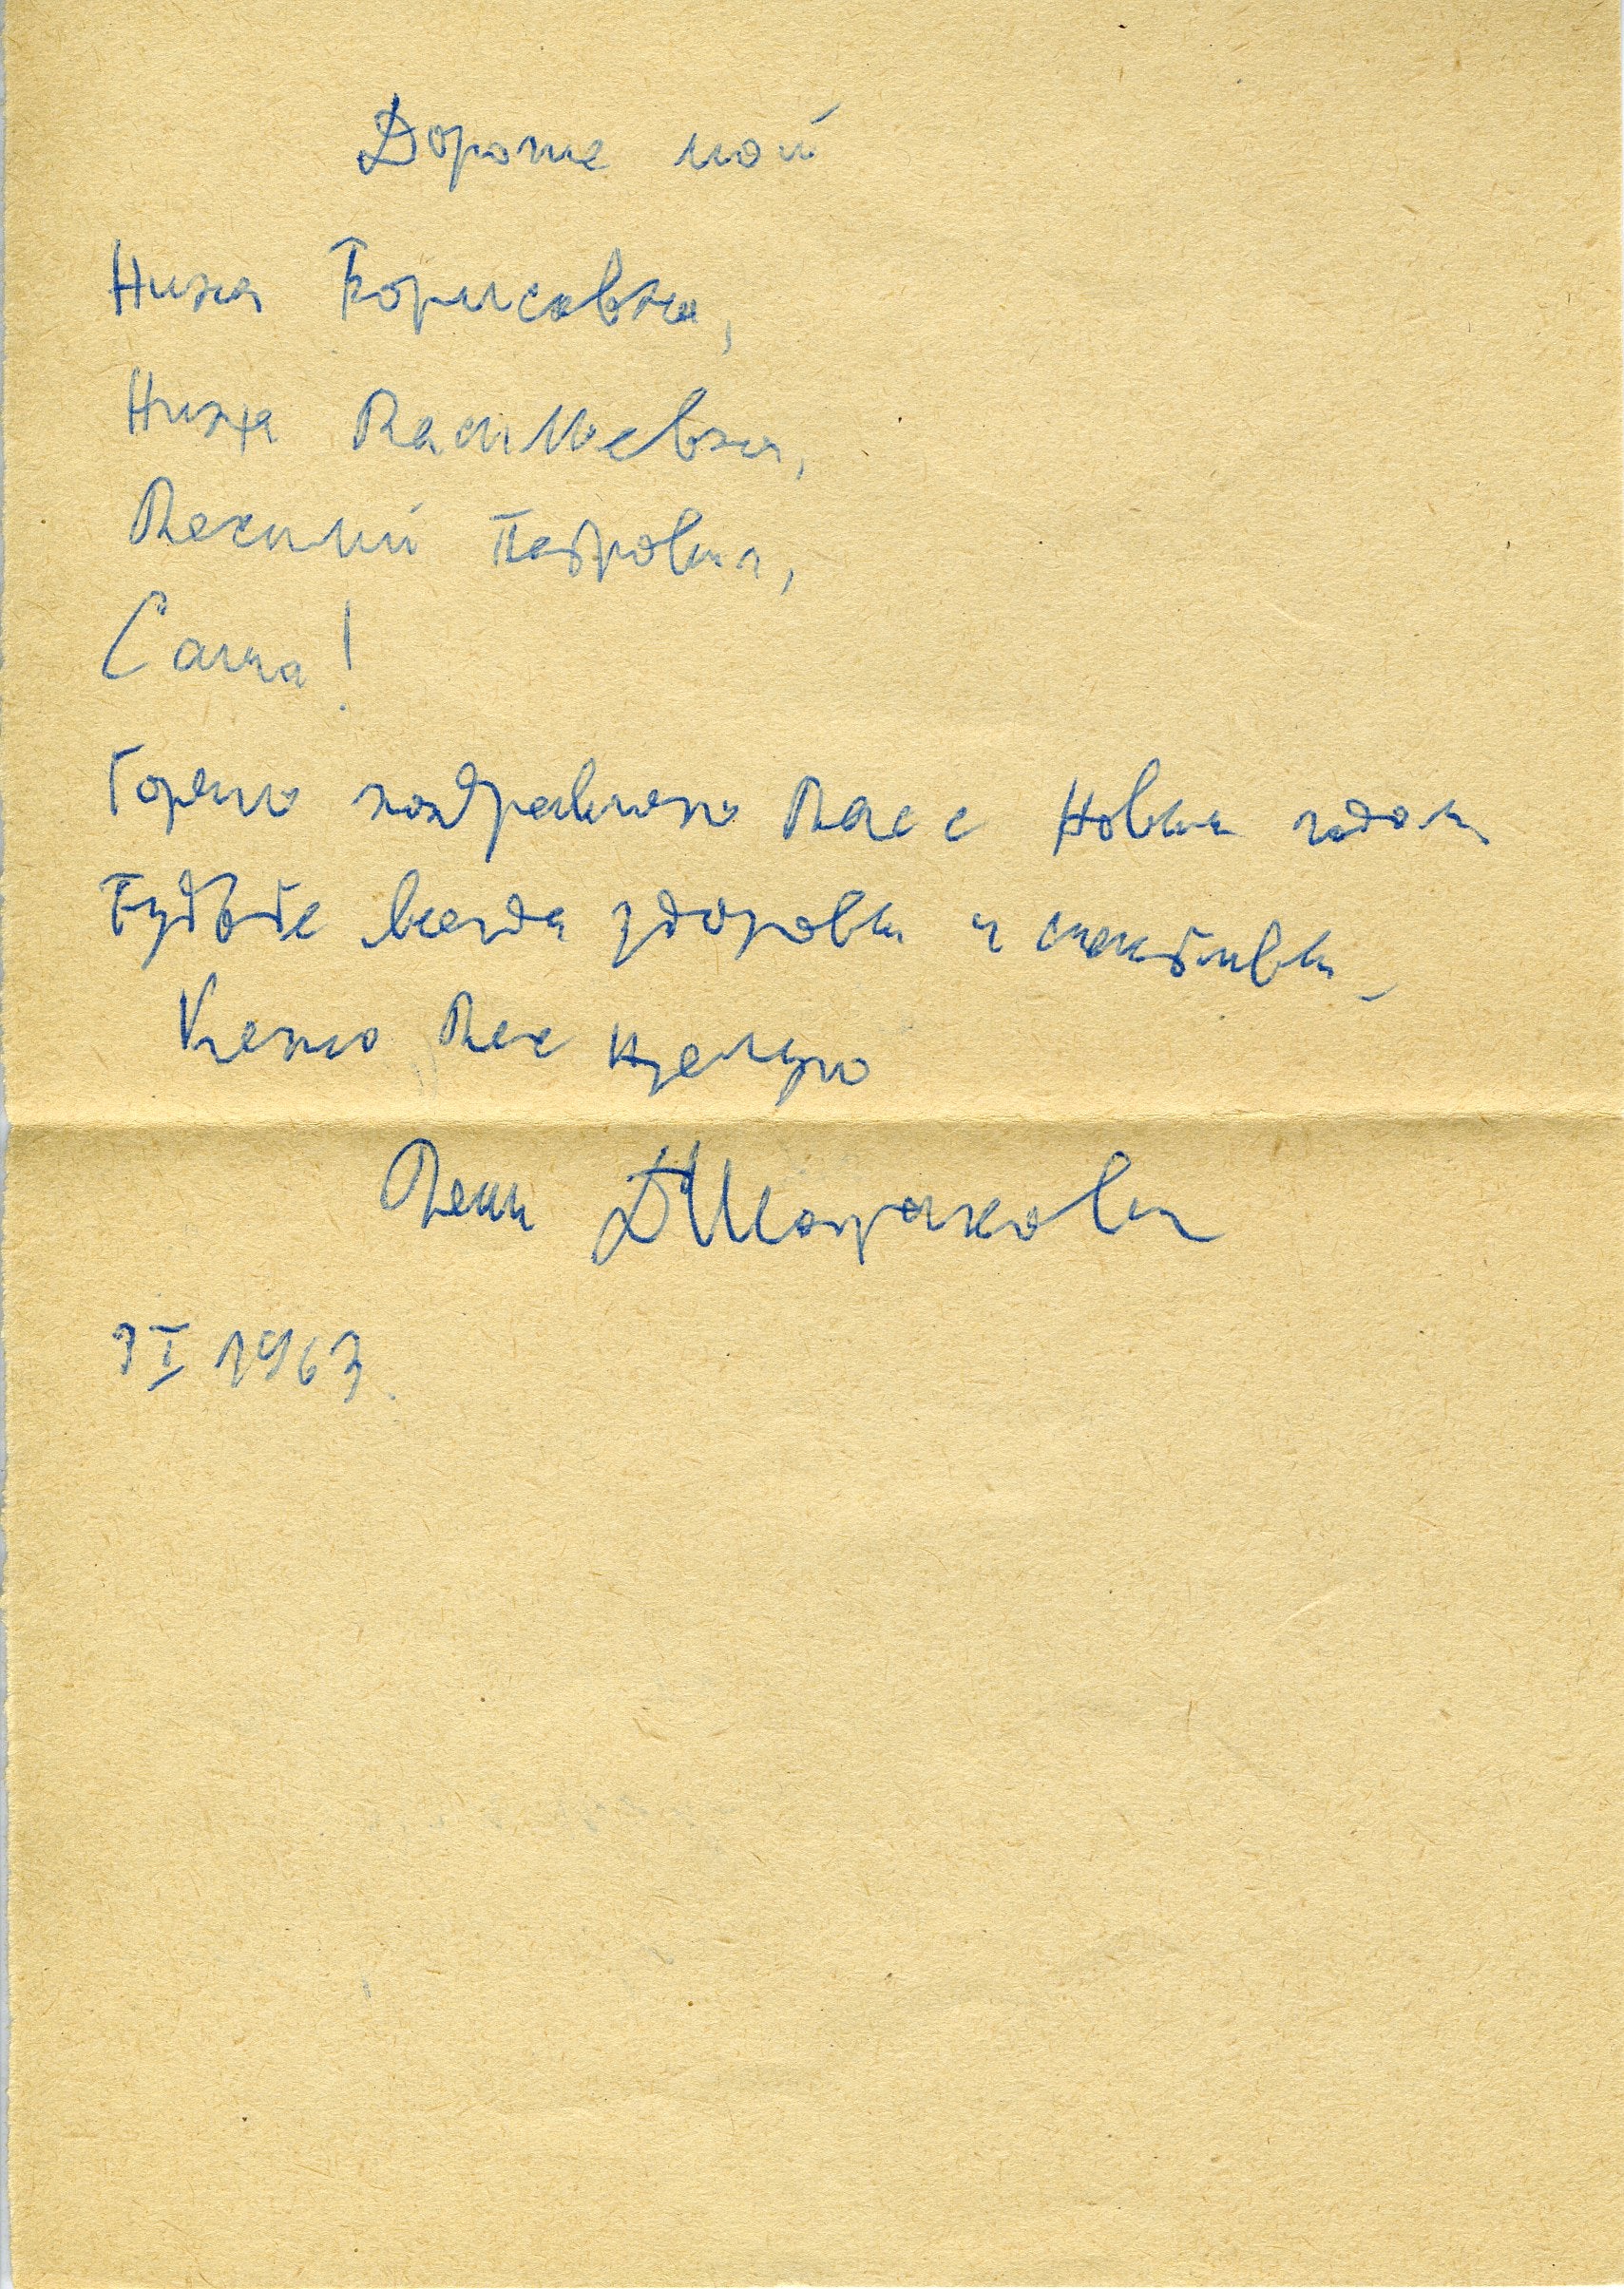 Дорогие мои
Нина Борисовна,
Нина Васильевна,
Василий Петрович,
Саша!
Горячо поздравляю Вас с Новым годом
Будьте всегда здоровы и счастливы.
Крепко Вас целую
Ваш Д Шостакович
1 I 1963.